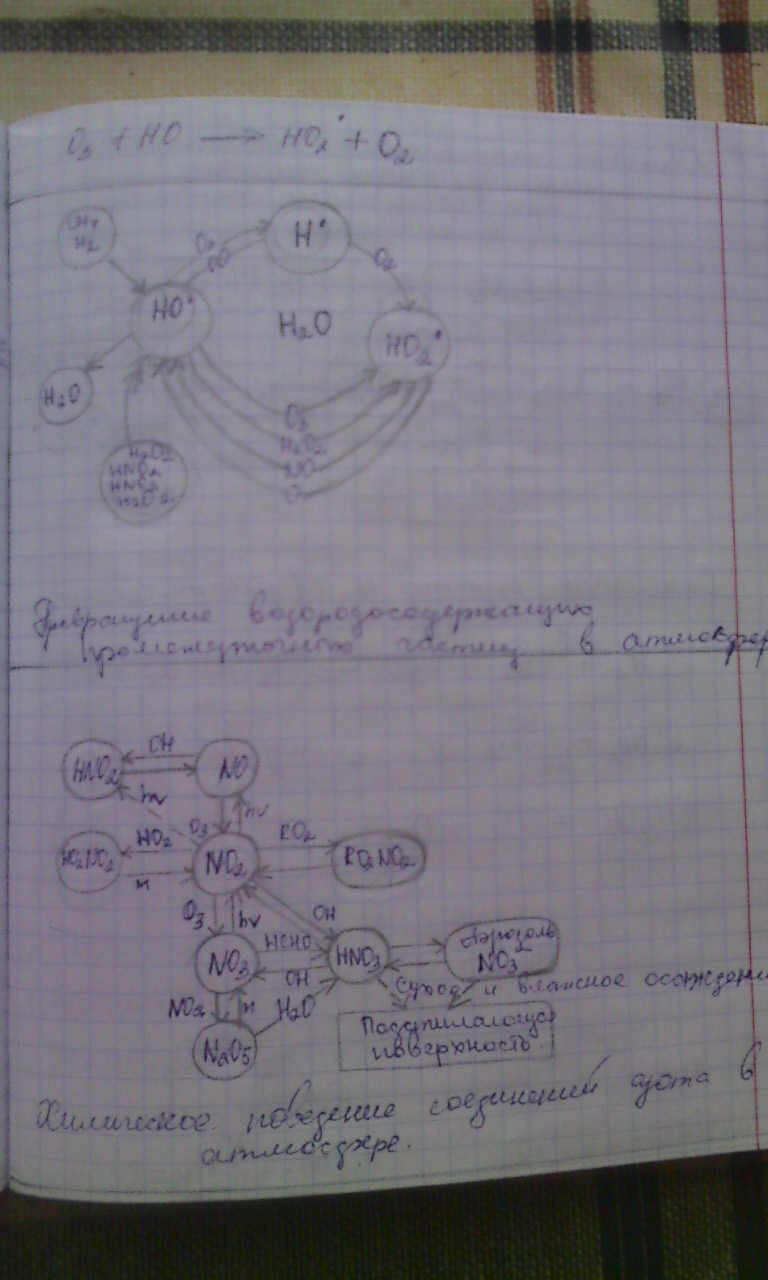 O₃ + HO → HO₂• + O₂
CH₄
H₂
O₃
CO
H•
O₂
HO•
H₂O
HO₂•
H₂O
O₃
H₂O₂
NO
O
H₂O₂
HNO₂
HNO₃
H₂O₂
Превращение водородосодержащих
промежуточных частиц в атмосфер
HNO₂
OH
NO
hν
O₃
hν
HO₂NO₂
HO₂
M
NO₂
RO₂
RO₂NO₂
O₃
hν
OH
NO₃
HCHO
OH
HNO₃
Аэрозоль
NO₃⁻
Сухое и влажное осаждени
NO₂
M
H₂O
Подстилающая
поверхность
N₂O₅
Химическое поведение соединений азота в
атмосфере.